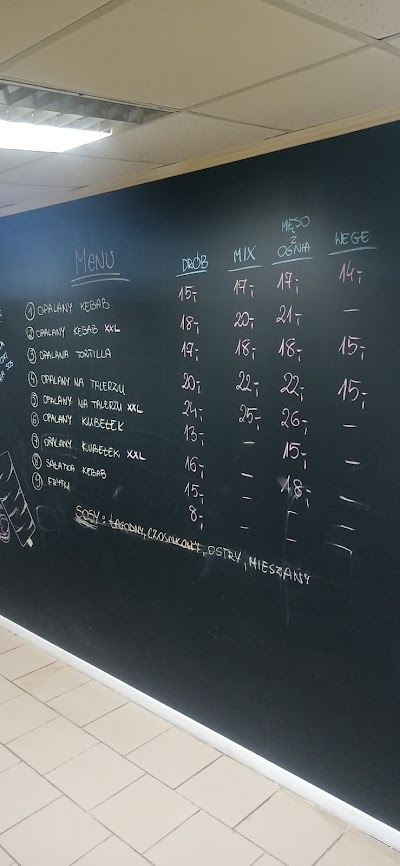 MENU DRÓB MIX MIĘSO Z OGNIA WEGE
1 OPALANY KEBAB 15,- 17,- 17,- 14,-
2 OPALANY KEBAB XXL 18,- 20,- 21,- —
3 OPALANA TORTILLA 17,- 18,- 18,- 15,-
4 OPALANY NA TALERZU 20,- 22,- 22,- 15,-
5 OPALANY NA TALERZU XXL 24,- 25,- 26,- —
6 OPALANY KUBEŁEK 13,- — 15,- —
7 OPALANY KUBEŁEK XXL 16,- — 18,- —
8 SAŁATKA KEBAB 15,- — — —
9 FRYTKI 8,- — — —
SOSY: ŁAGODNY, CZOSNKOWY, OSTRY, MIESZANY